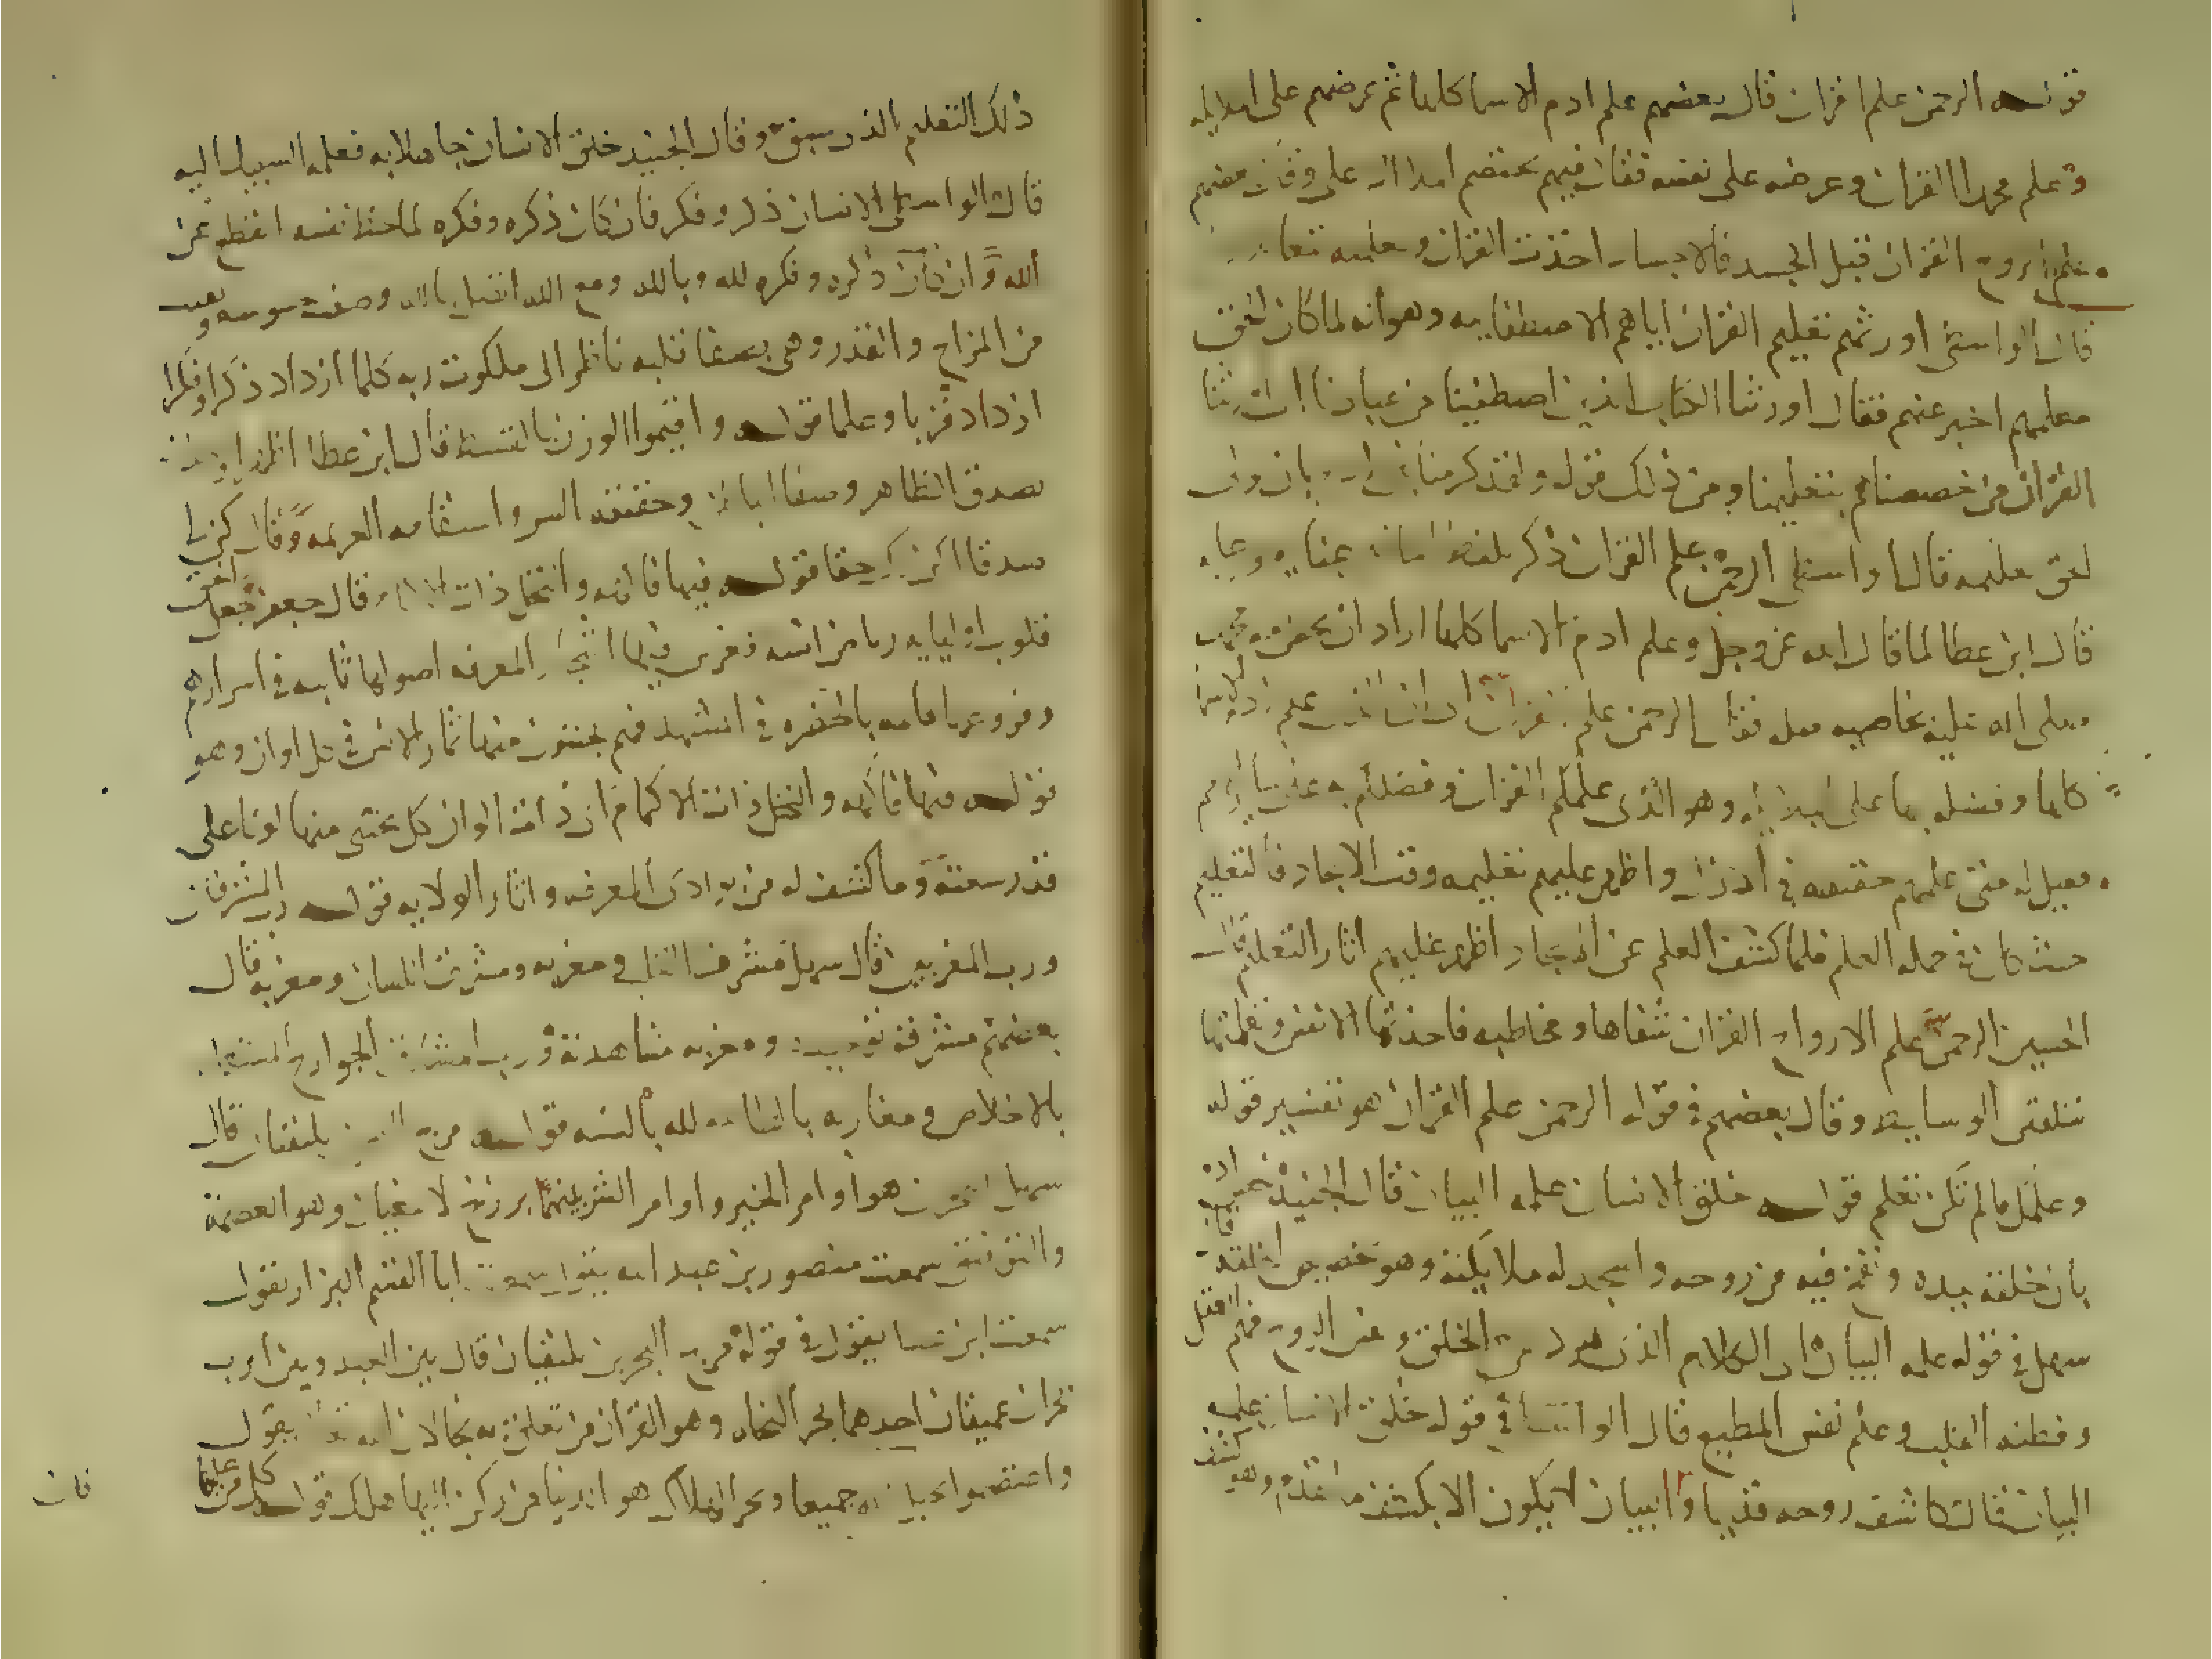 قوله الرحمن علم القران قال بعضهم علم ادم الاسما كلها ثم عرضهم على الملايكه
وعلم محمدا القران وعرضه على نفسه فقال فيهم يختصم الملا الاعلى وقال بعضهم
علم الروح القران قبل الجسد فالاجساد اخذت القران وعلمه
قال الواسطى اورثهم تعليم القران اياهم الاصطفاييه وهو انه لما كان الحق
معلمهم اخبر عنهم فقال اورثنا الكتاب الذين اصطفينا من عبادنا اى اورثنا
القران من خصصناهم بتعليمنا ومن ذلك قوله ولقد كرمنا بنى ادم بان
الحق علمه قال الواسطى الرحمن علم القران ذكر بلفظ
قال ابن عطا لما قال الله عز وجل وعلم ادم الاسما كلها اراد ان يخص امة محمد
صلى الله عليه بخاصيه مثله فقال الرحمن علم القران اى الذى علم ادم الاسما
كلها وفضله بها على الملايكه وهو الذى علمكم القران وفضلكم به على ساير الامم
فقيل له متى علمهم قال علمهم حقيقه فى الازل واظهر عليهم تعليمه وقت الايجاد فالتعليم
حيث كان فى جملة العلم فلما كشف العلم عن الايجاد اظهر عليهم اثار التعليم قال
الحسين الرحمن علم الارواح القران شفاها ومخاطبه فاخذتها الانفس وتعلمتها
بتلقى الوسايط وقال بعضهم فى قوله الرحمن علم القران هو تفسير قوله
وعلمك مالم تكن تعلم قوله خلق الانسان علمه البيان قال الجنيد خص ادم
بان خلقه بيده ونفخ فيه من روحه واسجد له ملايكته وهو خصيص الخلقه قال
سهل فى قوله علمه البيان اى الكلام الذى هو من نفس الخلق ونفس الروح وفهم العقل
وفطنه القلب وعلم نفس الطبع قال الواسطى فى قوله خلق الانسان علمه
البيان قال كاشف روحه قديما والبيان لا يكون الا بكشف ما تقدم وهو كشف
ذلك التعليم الذى سبق وقال الجنيد خلق الانسان جاهلا به فعلمه السبيل اليه
قال الواسطى الانسان ذكر وفكر فان كان ذكره وفكره لملاحظة نفسه انقطع عن
الله وان كان ذكره وفكره لله وبالله ومع الله اتصل بالله وصفت سريرته وبعد
من المزاج والقذر وهى بصفا قلبه ناظر الى ملكوت ربه كلما ازداد ذكرا وفكرا
ازداد قربا وعلما قوله واقيموا الوزن بالقسط قال ابن عطا
بصدق الظاهر وصفا الباطن وحقيقه السر واستقامه العزيمه وقال كن لى
صدقا اكن لك حقا قوله فيها فاكهه والنخل ذات الاكمام قال جعفر جعل الحق
قلوب اوليايه رياض انسه فغرس فيها اشجار المعرفه اصولها ثابته فى اسرارهم
وفروعها قايمه بالحضره فى المشهد فهم يجتنون منها ثمار الانس فى كل اوان وهو
قوله فيها فاكهه والنخل ذات الاكمام اى ذات الالوان كل يجتنى منها لونا على
قدر سعته وما كشف له من بوادى المعرفه واثار الولايه قوله رب المشرقين
ورب المغربين قال سهل مشرق القلب ومغربه ومشرق اللسان ومغربه قال
بعضهم مشرقه توحيده ومغربه مشاهدته ورب مشارق الجوارح
بالاخلاص ومغاربه بالطاعه لله بالسنه قوله مرج البحرين يلتقيان قال
سهل البحرين هو اوامر الخير واوامر الشر بينهما برزخ لا يبغيان وهو العصمه
والتوفيق سمعت منصور بن عبد الله يقول سمعت ابا القسم البزار يقول
سمعت ابن عطا يقول فى قوله مرج البحرين يلتقيان قال بين العبد وبين الرب
بحران عميقان احدهما بحر النجاه وهو القران من تعلق به نجا لان الله تعالى يقول
واعتصموا بحبل الله جميعا وبحر الهلاك هو الدنيا من ركن اليها هلك قوله كل من عليها
فان